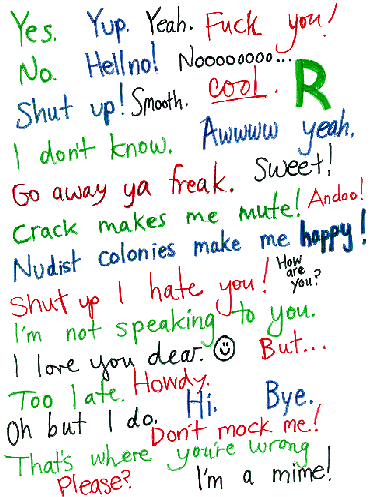 Yes. Yup. Yeah. Fuck you!
No. Hellno! Noooooooo...
Shut up! Smooth. cool. R
I don't know. Awwww yeah.
Sweet!
Go away ya freak. Andoo!
Crack makes me mute!
Nudist colonies make me happy!
Shut up I hate you! How are you?
I'm not speaking to you.
I love you dear. But...
Too late. Howdy.
Hi. Bye.
Oh but I do. Don't mock me!
That's where you're wrong
Please? I'm a mime!